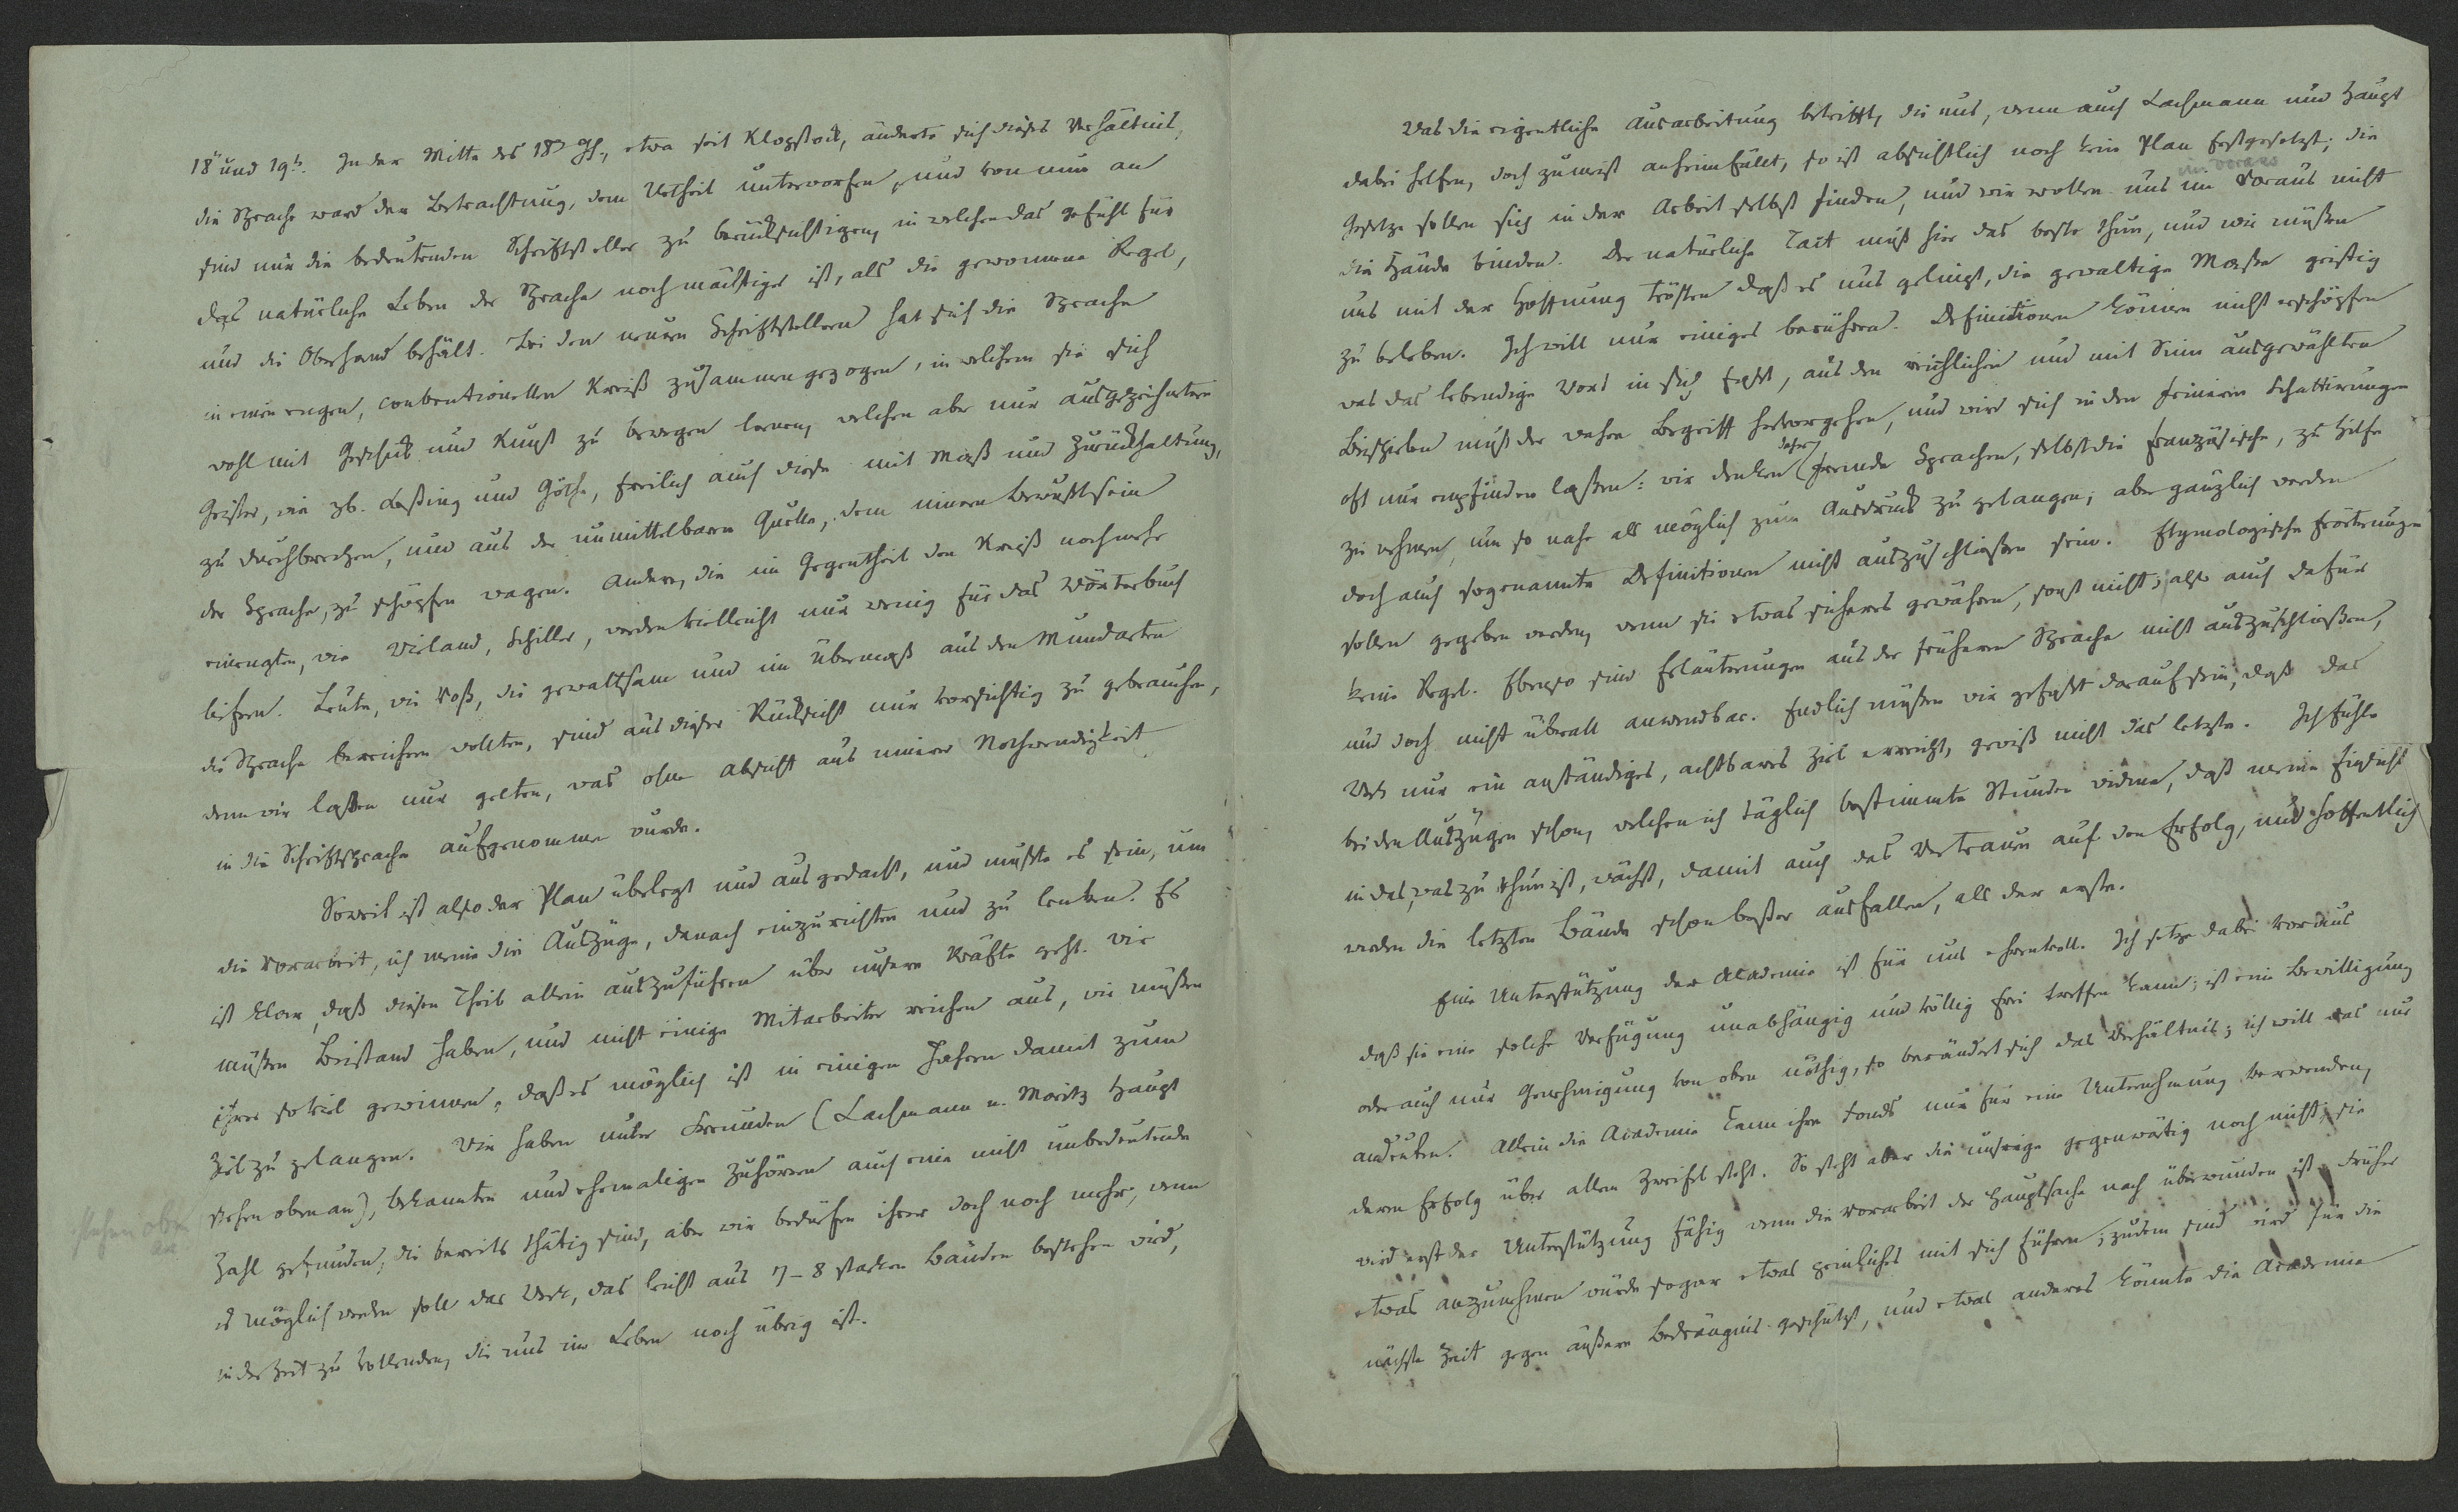 18n und 19h. In der Mitte des 18t Jh., etwa seit Klopstock, änderte sich dieses Verhältnis,
die Sprache ward der Betrachtung, dem Urtheil unterworfen, und von nun an
sind nur die bedeutenden Schriftsteller zu berücksichtigen, in welchen das gefühl für
das natürliche Leben der Sprache noch mächtiger ist, als die gewonnene Regel,
und die Oberhand behält. Bei den neuen Schriftstellern hat sich die Sprache
in einen engen, conventionellen Kreiß zusammengezogen, in welchem sie sich
wohl mit Geschick und Kunst zu bewegen lernen, welchen aber nur ausgezeichnetere
Geister, wie zb. Lessing und Göthe, freilich auch diese mit Maß und Zurückhaltung,
zu durchbrechen, und aus der unmittelbaren Quelle, dem innern Bewustsein
der Sprache, zu schöpfen wagen. Andere, die im Gegentheil den Kreiß noch mehr
einengten, wie Wieland, Schiller, werden vielleicht nur wenig für das Wörterbuch
liefern. Leute, wie Voß, die gewaltsam und im Übermaß aus den Mundarten
die Sprache bereichern wollten, sind aus dieser Rücksicht nur vorsichtig zu gebrauchen,
denn wir laßen nur gelten, was ohne Absicht aus innerer Nothwendigkeit
in die Schriftsprache aufgenommen wurde.
Soweit ist also der Plan überlegt und ausgedacht, und mußte es sein, um
die Vorarbeit, ich meine die Auszüge, danach einzurichten und zu lenken. Es
ist klar, daß diesen Theil allein auszuführen über unsere Kräfte geht. Wir
müßen Beistand haben, und nicht einige Mitarbeiter reichen aus, wir müßen
ihrer so viel gewinnen, daß es möglich ist in einigen Jahren damit zum
Ziel zu gelangen. Wir haben unter Freunden (Lachmann u. Moritz Haupt
stehen oben an), bekannten und ehemaligen Zuhörern auch eine nicht unbedeutende
stehen oben an
Zahl gefunden, die bereits thätig sind, aber wir bedürfen ihrer doch noch mehr, wenn
es möglich werden soll das Werk, das leicht aus 7-8 starken Bänden bestehen wird,
in der Zeit zu vollenden, die uns im Leben noch übrig ist.
Was die eigentliche Ausarbeitung betrifft, die uns, wenn auch Lachmann und Haupt
dabei helfen, doch zumeist anheimfällt, so ist absichtlich noch kein Plan festgesetzt; die
im voraus
Gesetze sollen sich in der Arbeit selbst finden, und wir wollen uns im Voraus nicht
die Hände binden. Der natürliche Tact muß hier das beste thun, und wir müßen
uns mit der Hoffnung trösten daß es uns gelingt, die gewaltige Masse geistig
zu beleben. Ich will nur einiges berühren. Definitionen können nicht erschöpfen
was das lebendige Wort in sich faßt, aus den reichlichen und mit Sinn ausgewählten
Beispielen muß der wahre Begriff hervorgehen, und wird sich in den feineren Schattirungen
oft nur empfinden laßen: wir denken daher fremde Sprachen, selbst die französische, zu Hilfe
zu nehmen, um so nahe als möglich zum Ausdruck zu gelangen; aber gänzlich werden
doch auch sogenannte Definitionen nicht auszuschließen sein. Etymologische Erörterungen
sollen gegeben werden, wenn sie etwas sicheres gewähren, sonst nicht; also auch dafür
keine Regel. Ebenso sind Erläuterungen aus der früheren Sprache nicht auszuschließen,
und doch nicht überall anwendbar. Endlich müßen wir gefaßt darauf sein, daß das
Werk nur ein anständiges, achtbares Ziel erreicht, gewiß nicht das letzte. Ich fühle
bei den Auszügen schon, welchen ich täglich bestimmte Stunden widme, daß meine Einsicht
in das, was zu thun ist, wächst, damit auch das Vertrauen auf den Erfolg, und hoffentlich
werden die letzten Bände schon beßer ausfallen, als der erste.
Eine Unterstützung der Academie ist für uns ehrenvoll. Ich setze dabei voraus
daß sie eine solche Verfügung unabhängig und völlig frei treffen kann; ist eine Bewilligung
oder auch nur Genehmigung von oben nöthig, so verändert sich das Verhältnis; ich will das nur
andeuten. Allein die Academie kann ihre Fonds nur für eine Unternehmung verwenden,
deren Erfolg über allen Zweifel steht. So steht aber die unsrige gegenwärtig noch nicht, sie
wird erst der Unterstützung fähig wenn die Vorarbeit der Hauptsache nach überwunden ist. Früher
etwas anzunehmen würde sogar etwas peinliches mit sich führen; zudem sind wird für die
nächste Zeit gegen äußere Bedrängnis geschützt, und etwas anderes könnte die Academie